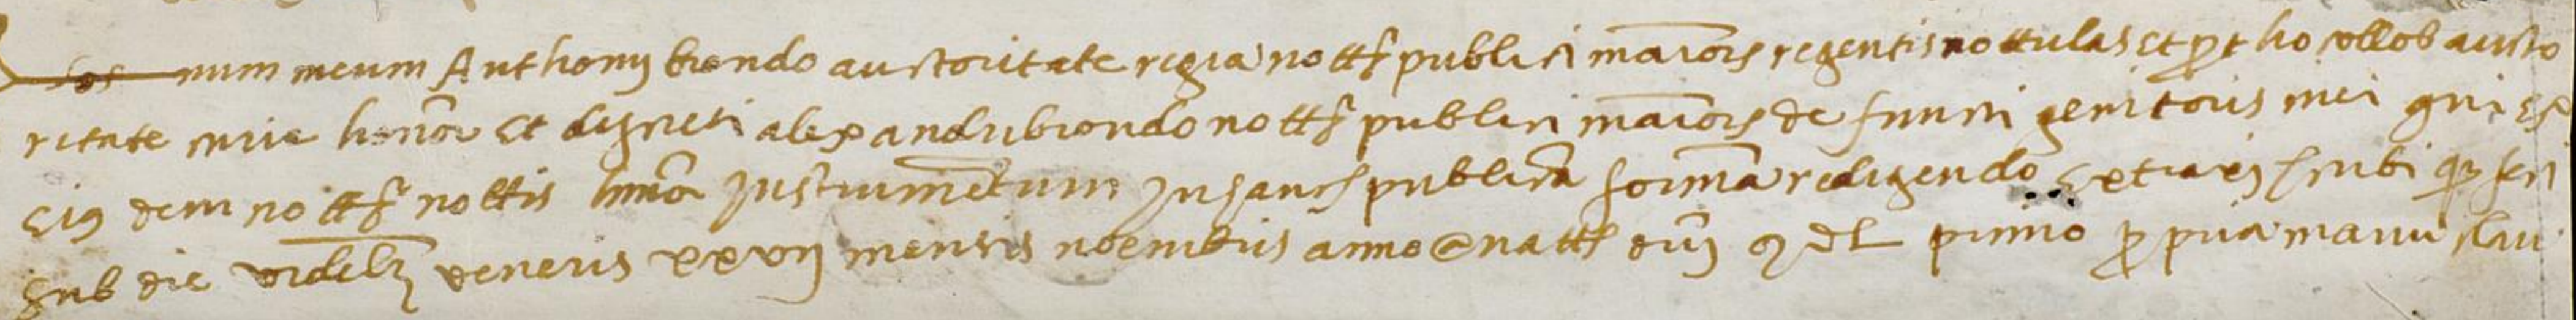 num meum Anthonij brondo auctoritate regia nottrij publici maioris regentis nottulas et prothocollos aucto
ritate mei honor et discreti alexandri brondo nottrij publici maioris de sunni genitoris mei qui ex
eius dem nottrij nottis hmoi Instrumetum In hanc publica forma redigendo extraxi scribi que feci
sub die videlz veneris xxvij mensis noembris anno @ natte dnj MDL primo propria manu clau